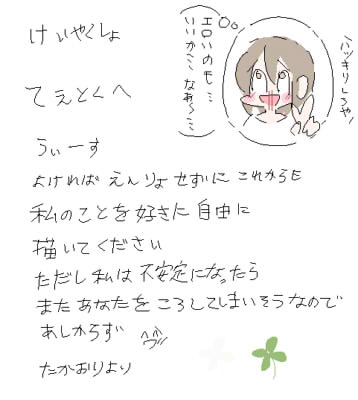 けいやくしょ
てえとくへ
うぃーす
よければ えんりょ せずに これからも
私のことを好きに自由に
描いてください
ただし私は不安定になったら
またあなたをころしてしまいそうなので
あしからず
たかおりより
ハッキリしろや!
エロいのも…
いいか… なぁ〜…